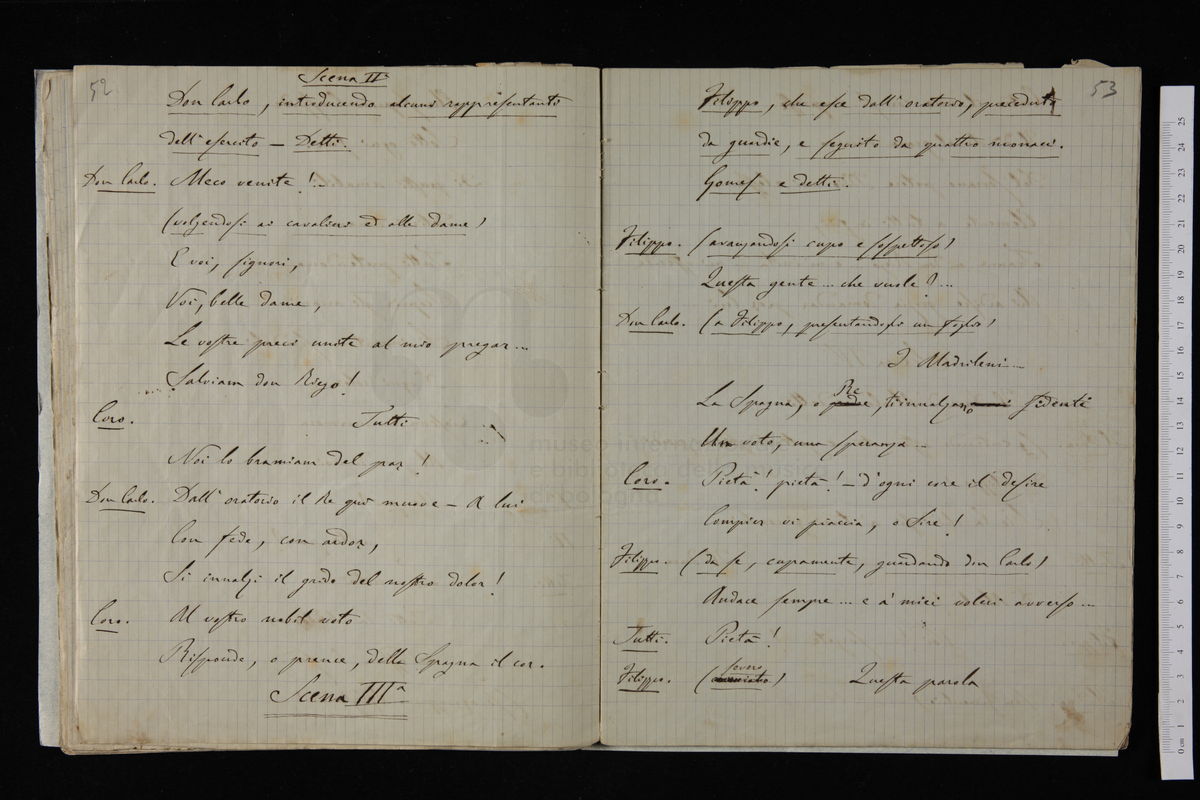 52
Scena IIª
Don Carlo, introducendo alcuni rappresentanti
dell'esercito – Detti.
Don Carlo. Meco venite!..
(volgendosi ai cavalieri ed alle dame)
E voi, signori,
Voi, belle dame,
Le vostre preci unite al mio pregar...
Salviam don Riego!
Coro. Tutti
Noi lo bramiam del par!
Don Carlo. Dall'oratorio il Re qui muove – A lui
Con fede, con ardor,
Si innalzi il grido del nostro dolor!
Coro. Al vostro nobil voto
Risponde, o prence, della Spagna il cor.
Scena IIIª
53
Filippo, che esce dall'oratorio, preceduto
da guardie, e seguito da quattro monaci.
Gomes e detti.
Filippo. (avanzandosi cupo e sospettoso)
Questa gente... che vuole?...
Don Carlo. (a Filippo, presentandogli un foglio)
I Madrileni...
Re
La Spagna, o padre, ti innalzano fidenti
Un voto, una speranza...
Coro. Pietà! pietà! – d'ogni core il desire
Compier vi piaccia, o Sire!
Filippo. (da se, cupamente, guardando don Carlo)
Audace sempre... e a' miei voleri avverso...
Tutti. Pietà!
severo
Filippo. ( ) Questa parola